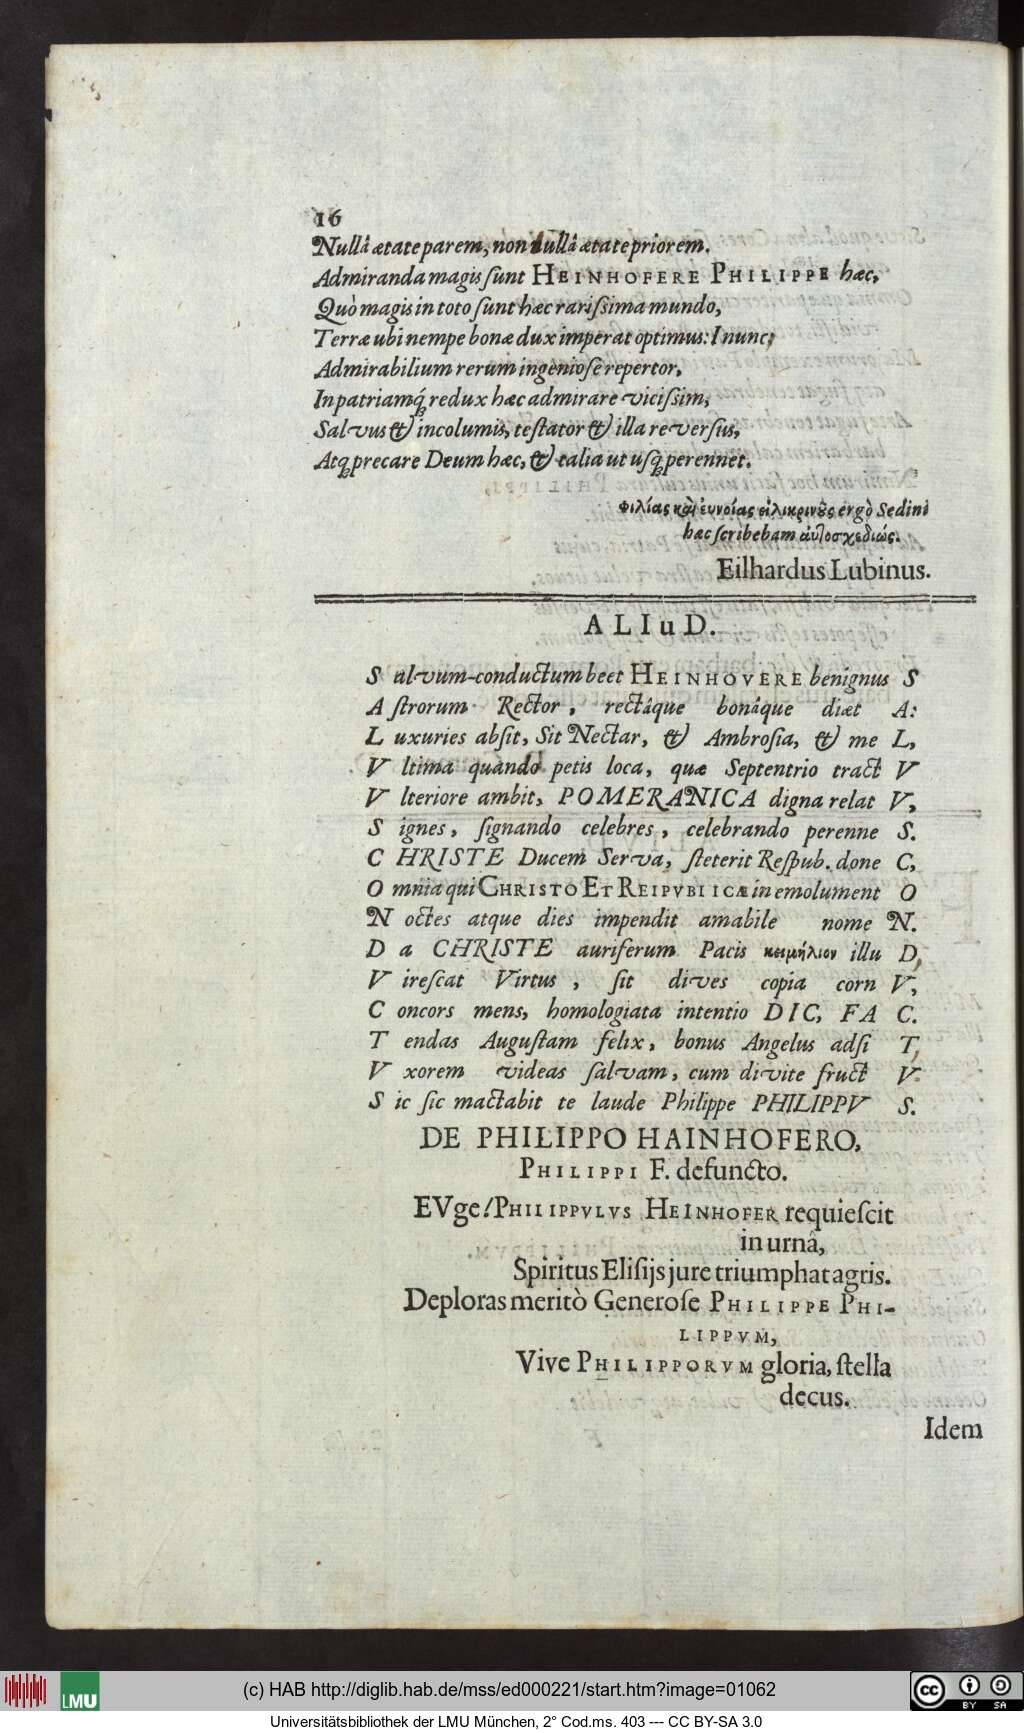 16
Nullâ ætate parem, non nullâ ætate priorem.
Admiranda magis sunt HEINHOFERE PHILIPPE hæc,
Quò magis in toto sunt hæc rarissima mundo,
Terræ ubi nempe bonæ dux imperat optimus: I nunc;
Admirabilium rerum ingeniose repertor,
In patriamq́; redux hæc admirare vicissim,
Salvus & incolumis, testator & illa reversus,
Atq; precare Deum hæc, & talia ut usq; perennet.
Φιλίας καὶ ἐυνοίας εἰλικρινοῦς ergò Sedini
hæc scribebam αὐτοσχεδιώς.
Eilhardus Lubinus.
ALIuD.
S alvum-conductum beet HEINHOVERE benignus S
A strorum Rector, rectâque bonâque diæt A:
L uxuries absit, Sit Nectar, & Ambrosia, & me L,
V ltima quando petis loca, quæ Septentrio tract V
V lteriore ambit, POMERANICA digna relat V,
S ignes, signando celebres, celebrando perenne S.
C HRISTE Ducem Serva, steterit Respub. done C,
O mnia qui CHRISTO ET REIPVBLICÆ in emolument O
N octes atque dies impendit amabile nome N.
D a CHRISTE auriferum Pacis κειμήλιον illu D,
V irescat Virtus, sit dives copia corn V,
C oncors mens, homologiata intentio DIC, FA C.
T endas Augustam felix, bonus Angelus adsi T,
V xorem videas salvam, cum divite fruct V.
S ic sic mactabit te laude Philippe PHILIPPV S.
DE PHILIPPO HAINHOFERO,
PHILIPPI F. defuncto.
EVge! PHILIPPVLVS HEINHOFER requiescit
in urnâ,
Spiritus Elisijs jure triumphat agris.
Deploras meritò Generose PHILIPPE PHI-
LIPPVM,
Vive PHILIPPORVM gloria, stella
decus.
Idem
(c) HAB http://diglib.hab.de/mss/ed000221/start.htm?image=01062
LMU
cc BY SA
Universitätsbibliothek der LMU München, 2° Cod.ms. 403 --- CC BY-SA 3.0